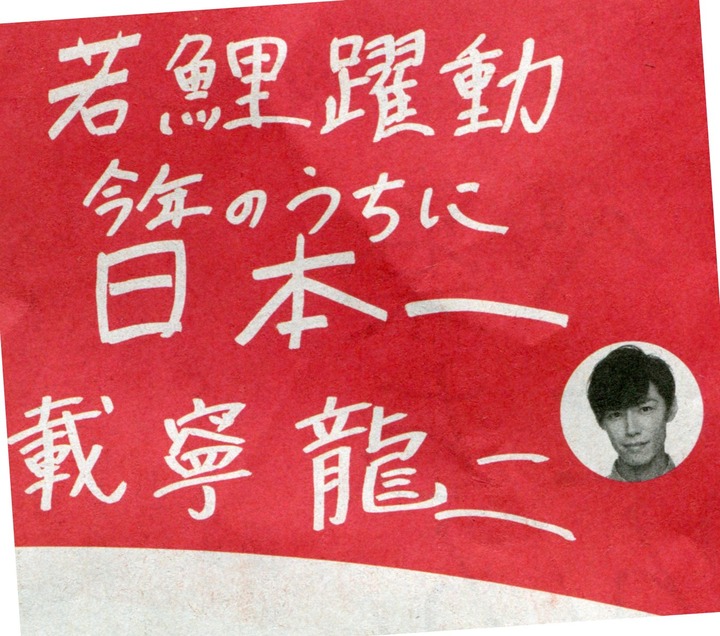 若鯉躍動
今年のうちに
日本一
載寧龍二